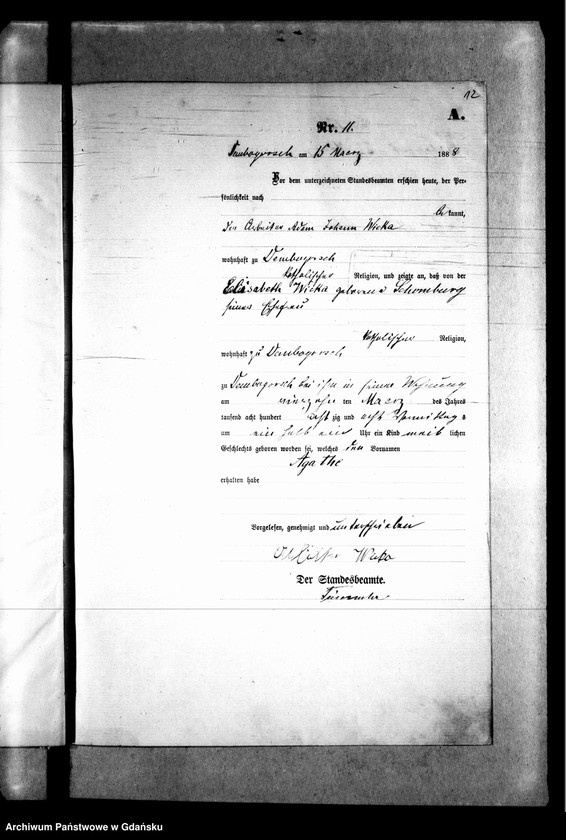 12
A.
Nr. 11.
Dembogorsch am 15 Maerz 1888
Vor dem unterzeichneten Standesbeamten erschien heute, der Per-
sönlichkeit nach
kannt,
der Arbeiter Adam Johann Wicka
wohnhaft zu Dembogorsch
katholischer Religion, und zeigte an, daß von der
Elisabeth Wicka geborene Schomburg
seiner Ehefrau
katholischer Religion,
wohnhaft zu Dembogorsch
zu Dembogorsch bei ihm in seiner Wohnung
am vierzehn ten Maerz des Jahres
tausend acht hundert acht zig und acht Vormittag s
um ein halb ein Uhr ein Kind weib lichen
Geschlechts geboren worden sei, welches den Vornamen
Agathe
erhalten habe
Vorgelesen, genehmigt und unterschrieben
Wicka
Der Standesbeamte.
Archiwum Państwowe w Gdańsku